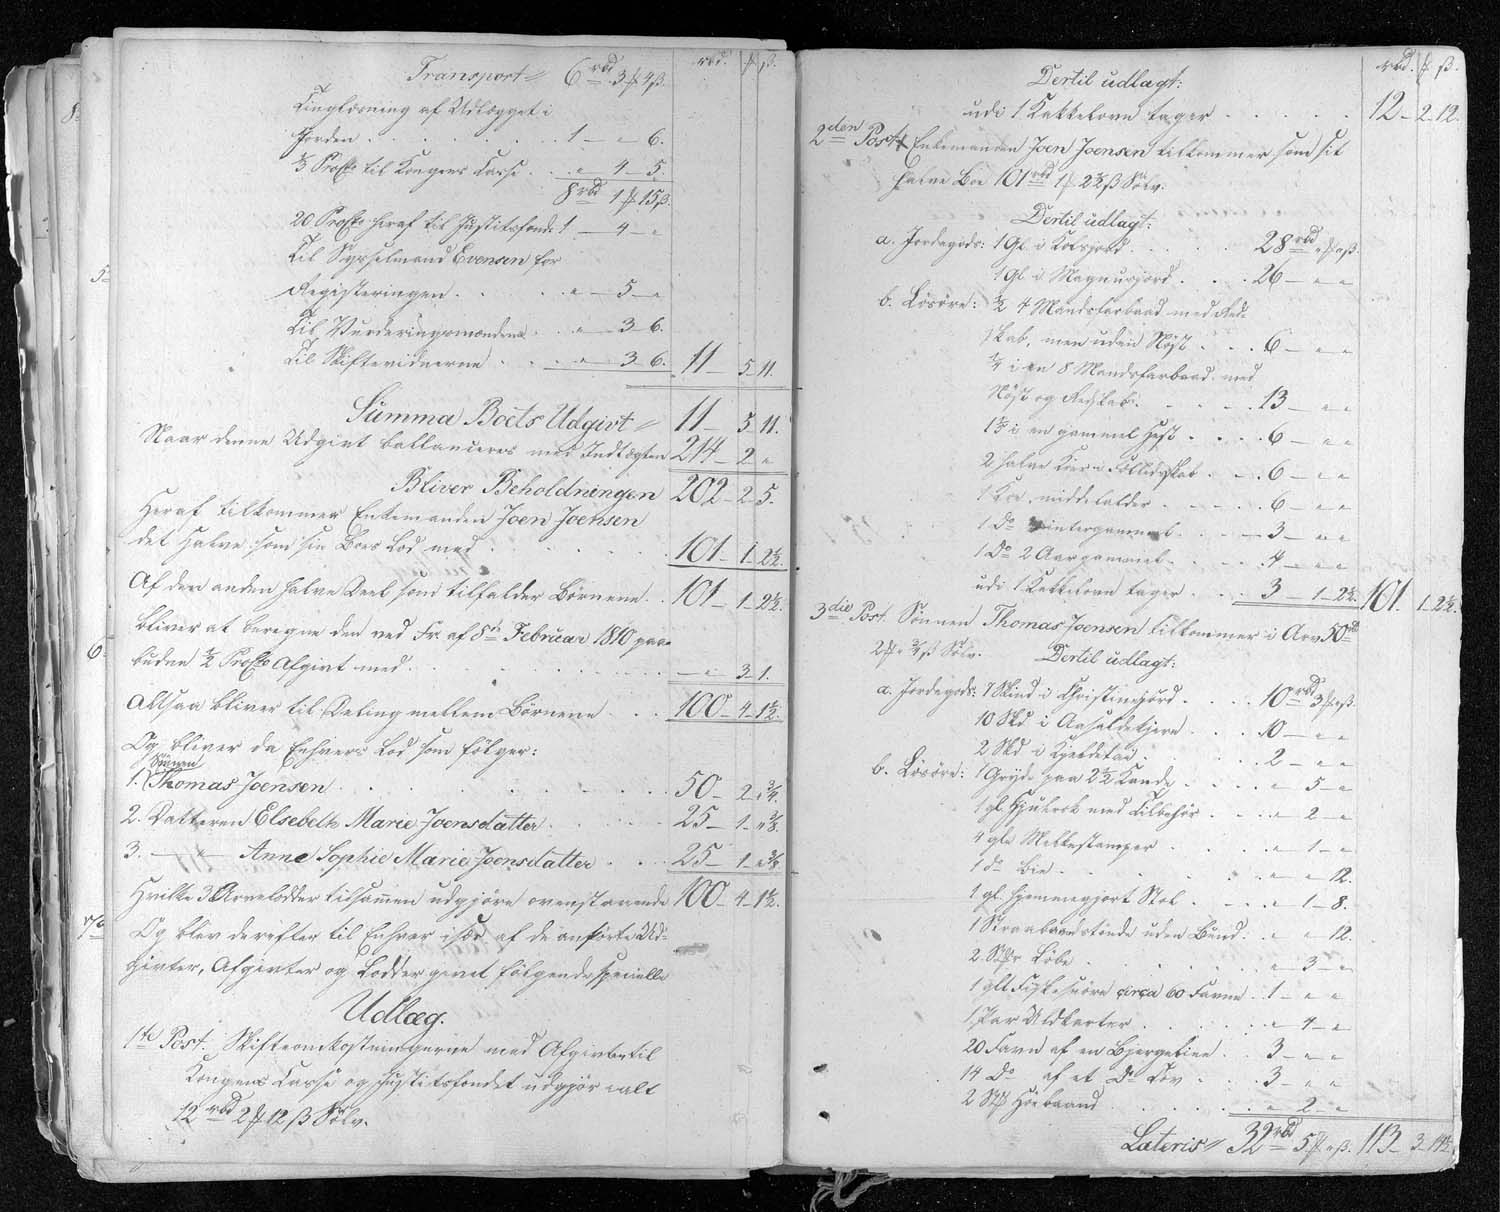 Transport 6 rbd 3 ℳ 4 ß.
rbd. ℳ ß.
Tinglæsning af Udlægget i
Jorden . . . 1 — „ 6.
½ Profto til Kongens Casse . . „ — 4 — 5.
8 rbd 1 ℳ 15 ß.
20 Profto heraf til Justitsfond: 1 — 4 — „
Til Sysselmand Evensen for
Registeringen . . . „ — 5 — „
Til Vurderingsmændene . „ — 3 — 6.
Til Skiftevidnerne . . . „ — 3 — 6. 11 — 5 — 11.
Summa Boets Udgivt 11 — 5 — 11.
Naar denne Udgivt ballanceres med Indtægten 214 — 2 — „
Bliver Beholdningen 202 — 2 — 5.
Heraf tilkommer Enkemanden Joen Joensen
det halve som sin Boes Lod med . . . 101 — 1 — 2½.
Af den anden halve Deel som tilfalder Børnene . . 101 — 1 — 2½.
bliver at beregne den ved Fr. af 8de Februar 1810 paa-
budne ½ Profto Afgivt med . . . — „ — 3 — 1.
Altsaa bliver til Deling mellem Børnene . . . 100 — 4 — 1½.
Og bliver da Enhvers Lod som følger:
Sönnen
1. Thomas Joensen . . . 50 — 2 — „ ¾.
2. Datteren Elsebeth Marie Joensdatter . . . 25 — 1 — „ ⅜.
3. — „ — Anne Sophie Marie Joensdatter . . . 25 — 1 — „ ⅜.
Hvilke 3 Arvelodder tilsammen udgjøre ovenstaaende 100 — 4 — 1½.
Og blev derefter til Enhver især af de anførte Ud-
givter, Afgivter og Lodder gjort følgende specielle
Udlæg.
1ste Post. Skifteomkostningerne med Afgivter til
Kongens Casse og Justitsfondet udgjør i alt
12 rbd 2 ℳ 12 ß Sølv.
rbd. ℳ ß.
Dertil udlagt:
udi 1 Kakkelovn tages . . . 12 — 2 — 12.
2den Post. Enkemanden Joen Joensen tilkommer som sit
halve Boe 101 rbd 1 ℳ 2½ ß Sølv.
Dertil udlagt:
a. Jordegods: 1 Gl. i . . . 28 rbd „ ℳ „ ß.
1 Gl. i Magnusjord . . . 26 — „ — „
b. Løsøre: ½ 4 Mandsfarbaad med Red-
skab, men uden Nöst . . . 6 — „ — „
¼ i en 8 Mandsfarbaad med
Nöst og Redskab . . . 13 — „ — „
1½ i en gammel Hest . . . 6 — „ — „
2 halve Kiør i Fællidsskab . . 6 — „ — „
1 Koe, middelalder . . . 6 — „ — „
1 Do vintergammel . . . 3 — „ — „
1 Do 2 Aar gammel . . . 4 — „ — „
udi 1 Kakkelovn tages . . . 3 — 1 — 2½. 101. 1. 2½.
3die Post. Sønnen Thomas Joensen tilkommer i Arv 50 rbd
2 ℳ „ ¾ ß Sølv.
Dertil udlagt:
a. Jordegods: 7 Skind i Christinejord . . . 10 rbd 3 ℳ „ ß.
10 Skd i . . . 10 — „ — „
2 Skd i . . . 2 — „ — „
b. Løsøre: 1 Gryde paa 2½ Kande . . . „ — 5 — „
1 gl. Hjulrok med Tilbehør . . . „ — 2 — „
4 gle Melkestamper . . . „ — 1 — „
1 do Bie . . . „ — „ — 12.
1 gl. hjemmegjort Stol . . . „ — 1 — 8.
1 tönde uden Bund . „ — „ — 12.
2 Løbe . . . „ — 3 — „
1 gl. Fiskesnöre circa 60 Favne . 1 — „ — „
1 Par Uldkarter . . . „ — 4 — „
20 Favn af en Bjergeline . . 3 — „ — „
14 Do af et Do Tov . . . 3 — „ — „
2 Stk Höebaand . . . „ — 2 — „
Lateris 32 rbd 5 ℳ „ ß. 113 — 3 — 14½